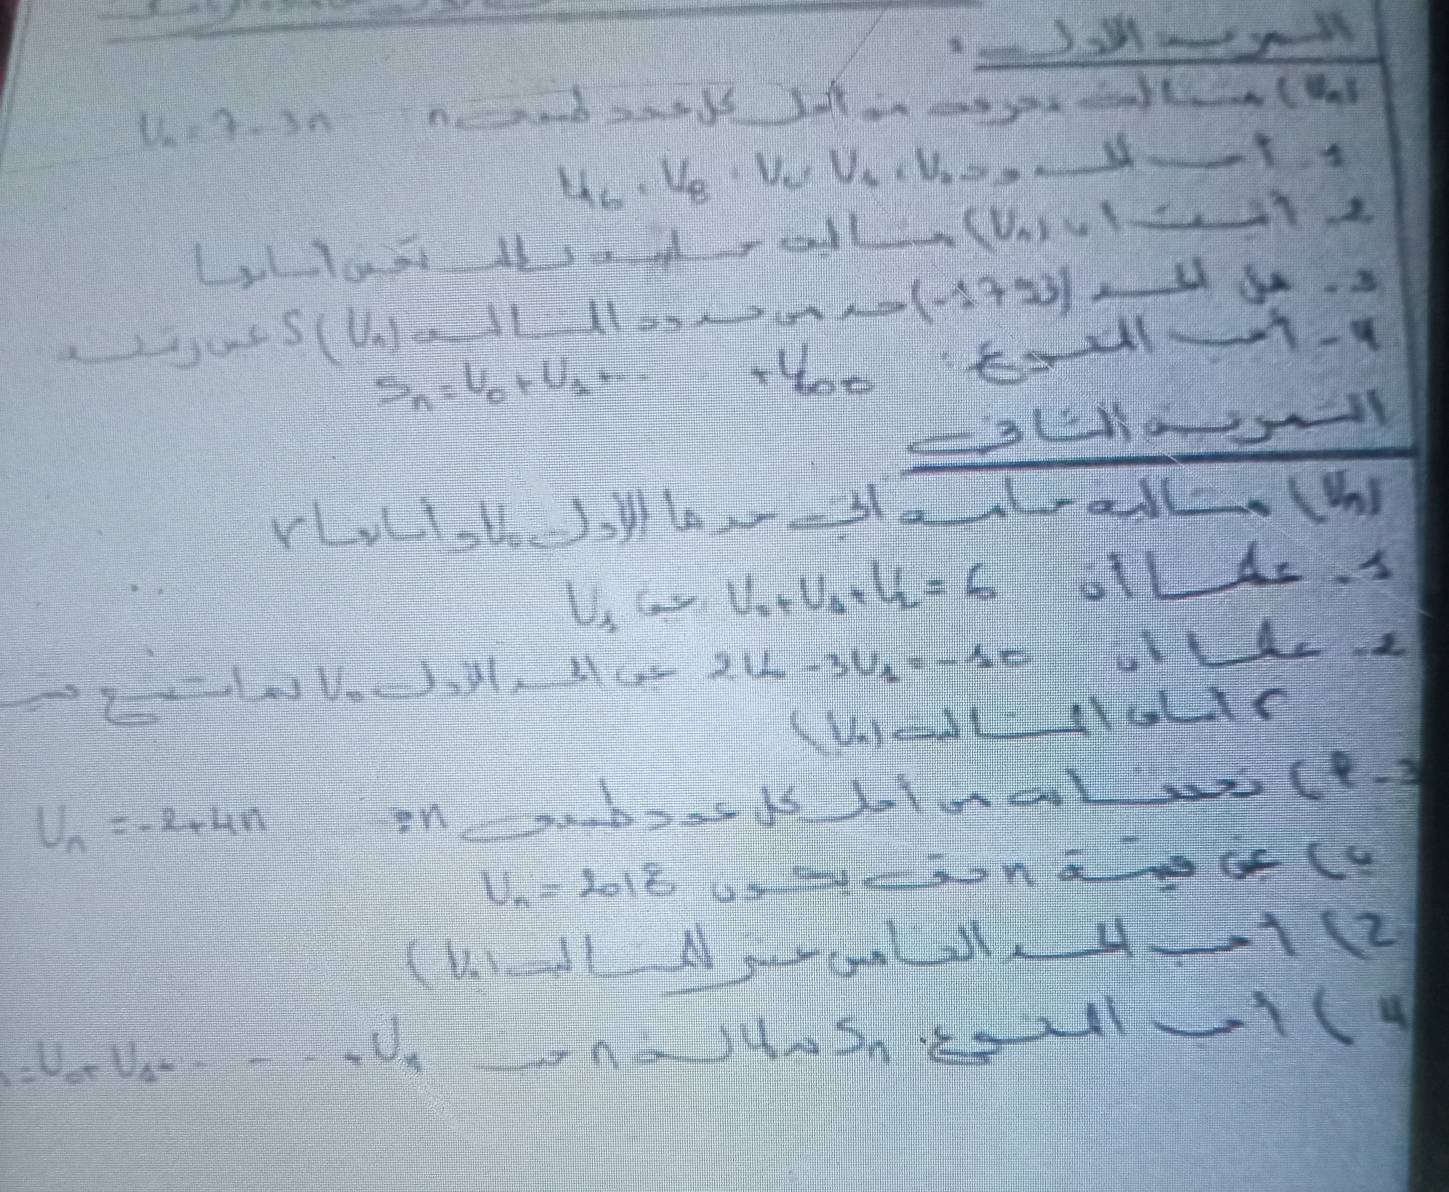 التمرين الأول :
(Un) متتالية معرفة من أجل كل عدد طبيعي n U_n = 7 - 3n
1. أحسب الحدود U_0 ، U_1 ، U_2 ، U_8 ، U_6
2. أثبت ان (U_n) متتالية حسابية يطلب تعيين أساسها
3. هل العدد (-1793) حد من حدود المتتالية (U_n) ؟ عين رتبته
4 - أحسب المجموع : S_n = U_0 + U_1 + ... + U_{400}
التمرين الثاني
(U_n) متتالية حسابية التي حدها الأول U_0 و أساسها r
1. علما أن U_0 + U_1 + U_2 = 6 عين U_1
2. علما ان 2U_0 - 3U_1 = -10 عين الحد الأول U_0 ثم استنتج
r اساس المتتالية (U_n)
3 - أ) تحقق انه من أجل كل عدد طبيعي n: U_n = -2 + 4n
ب) عين قيمة n حتى يكون U_n = 2018
2) أحسب الحد الخامس عشر للمتتالية (U_n)
4) أحسب المجموع S_n بدلالة n حيث = U_0 + U_1 + ... + U_n